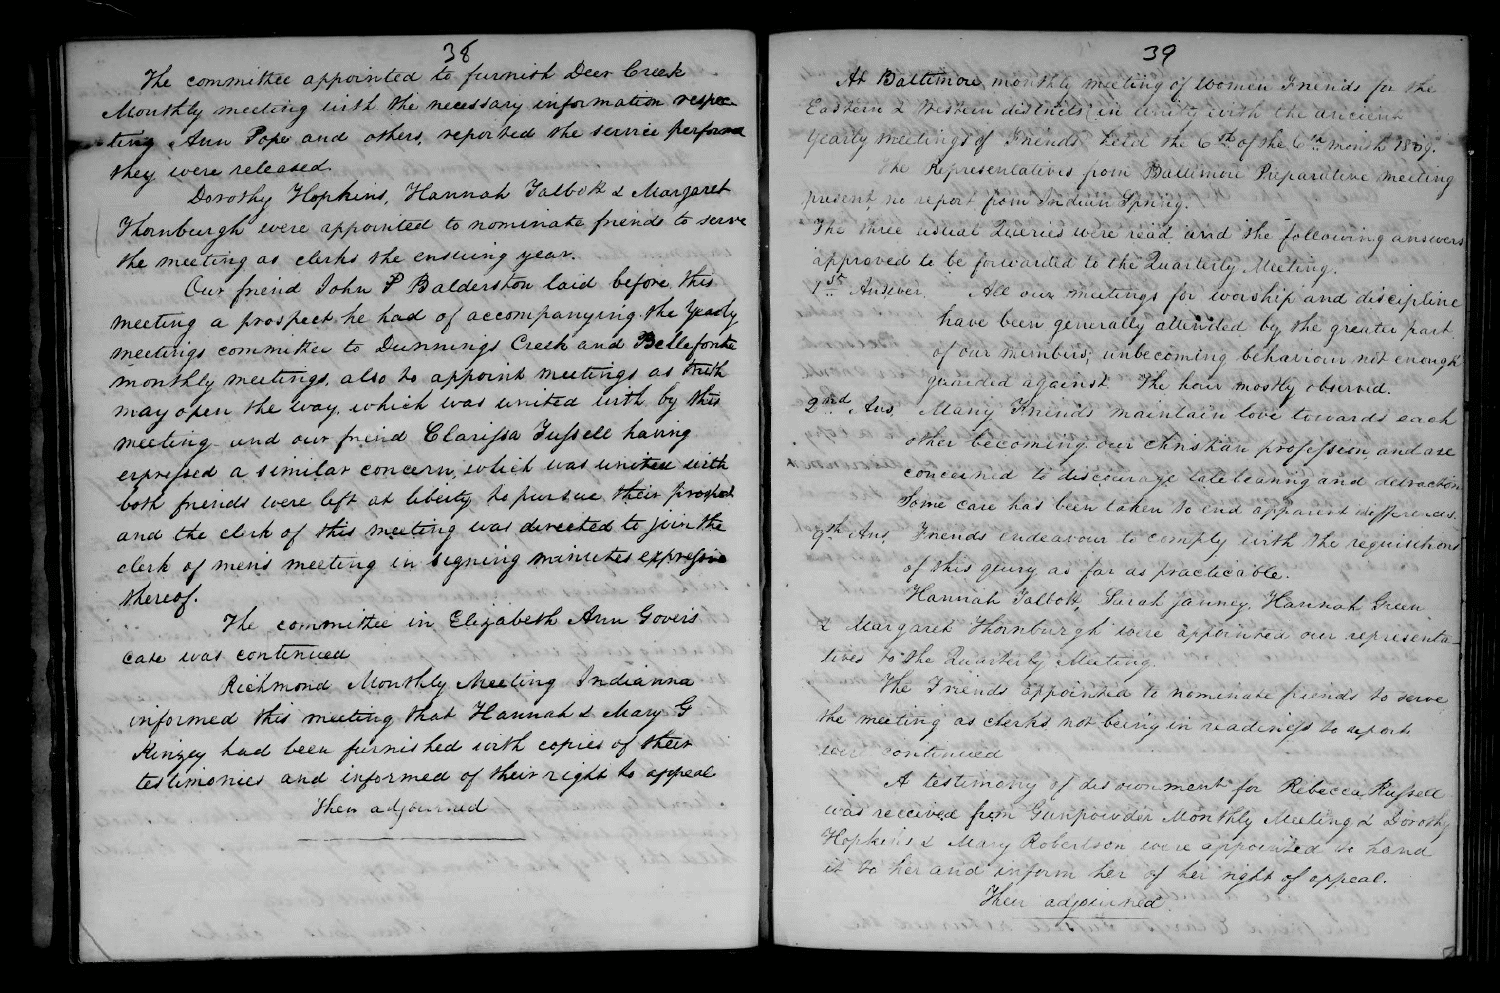 38
The committee appointed to furnish Deer Creek
Monthly meeting with the necessary information respec-
ting Ann Pope and others, reported the service performd
they were released.
Dorothy Hopkins, Hannah Talbott & Margaret
Thornburgh were appointed to nominate friends to serve
the meeting as clerks the ensuing year.
Our friend John P Balderston laid before this
meeting a prospect he had of accompanying the Yearly
meetings committee to Dunnings Creek and Bellefonte
monthly meetings, also to appoint meetings as truth
may open the way, which was united with by this
meeting and our friend Clarissa Tussell having
expressed a similar concern, which was united with
both friends were left at liberty to pursue their prospect
and the clerk of this meeting was directed to join the
clerk of mens meeting in signing minutes expressive
thereof.
The committee in Elizabeth Ann Govers
case was continued
Richmond Monthly Meeting Indianna
informed this meeting that Hannah & Mary G
Kinzey had been furnished with copies of their
testimonies and informed of their right to appeal
Then adjourned
39
At Baltimore monthly meeting of women Friends for the
Eastern & Western districts (in unity with the ancient
Yearly meetings of Friends held the 6th of the 6th month
The Representatives from Baltimore Preparative meeting
present, no report from Indian Spring.
The three usual Queries were read and the following answers
approved to be forwarded to the Quarterly Meeting.
1st Answer. All our meetings for worship and discipline
have been generally attended by the greater part
of our members; unbecoming behaviour not enough
guarded against. The hour mostly observed.
2nd Ans. Many Friends maintain love towards each
other becoming our christian profession, and are
concerned to discourage talebearing and detraction
Some care has been taken to end apparent differences.
9th Ans. Friends endeavour to comply with the requisitions
of this query as far as practicable.
Hannah Talbott, Sarah Janney, Hannah Green
& Margaret Thornburgh were appointed our representa-
tives to the Quarterly Meeting.
The Friends appointed to nominate friends to serve
the meeting as clerks not being in readiness to report
were continued
A testimony of disownment for Rebecca Russell
was received from Gunpowder Monthly Meeting & Dorothy
Hopkins & Mary Robertson were appointed to hand
it to her and inform her of her right of appeal.
Then adjourned.